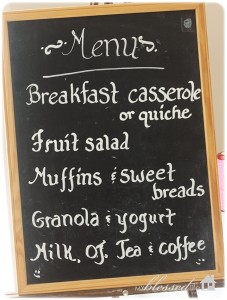 ~Menu~
Breakfast casserole
or quiche
Fruit salad
Muffins & sweet
breads
Granola & yogurt
Milk, OJ, Tea & Coffee
blessed